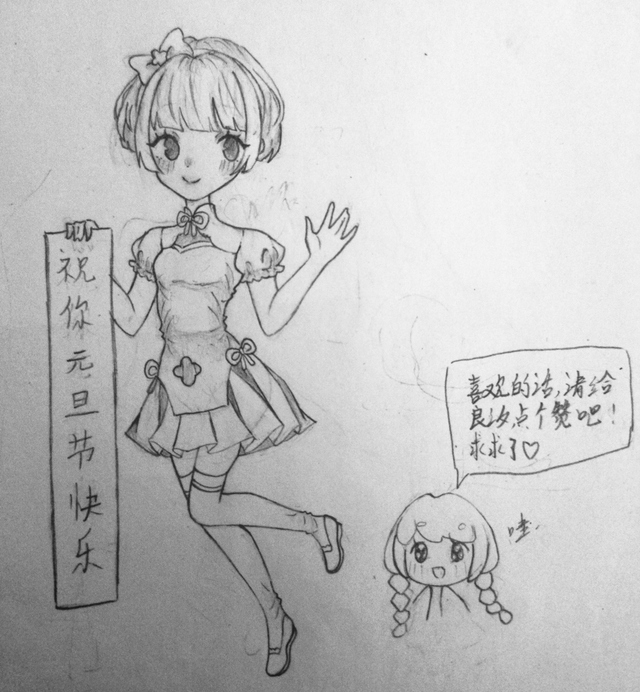 祝你元旦节快乐
喜欢的话,请给
良汐点个赞吧!
求求了♡
哇.